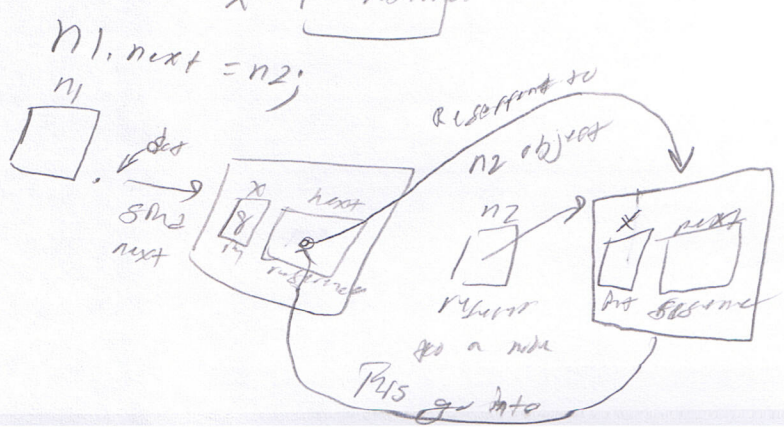 n1.next = n2;
n1
dot
find
next
x
8
int
next
reference
Reference to
n2 object
n2
reference
to a node
x
next
int
reference
This go into